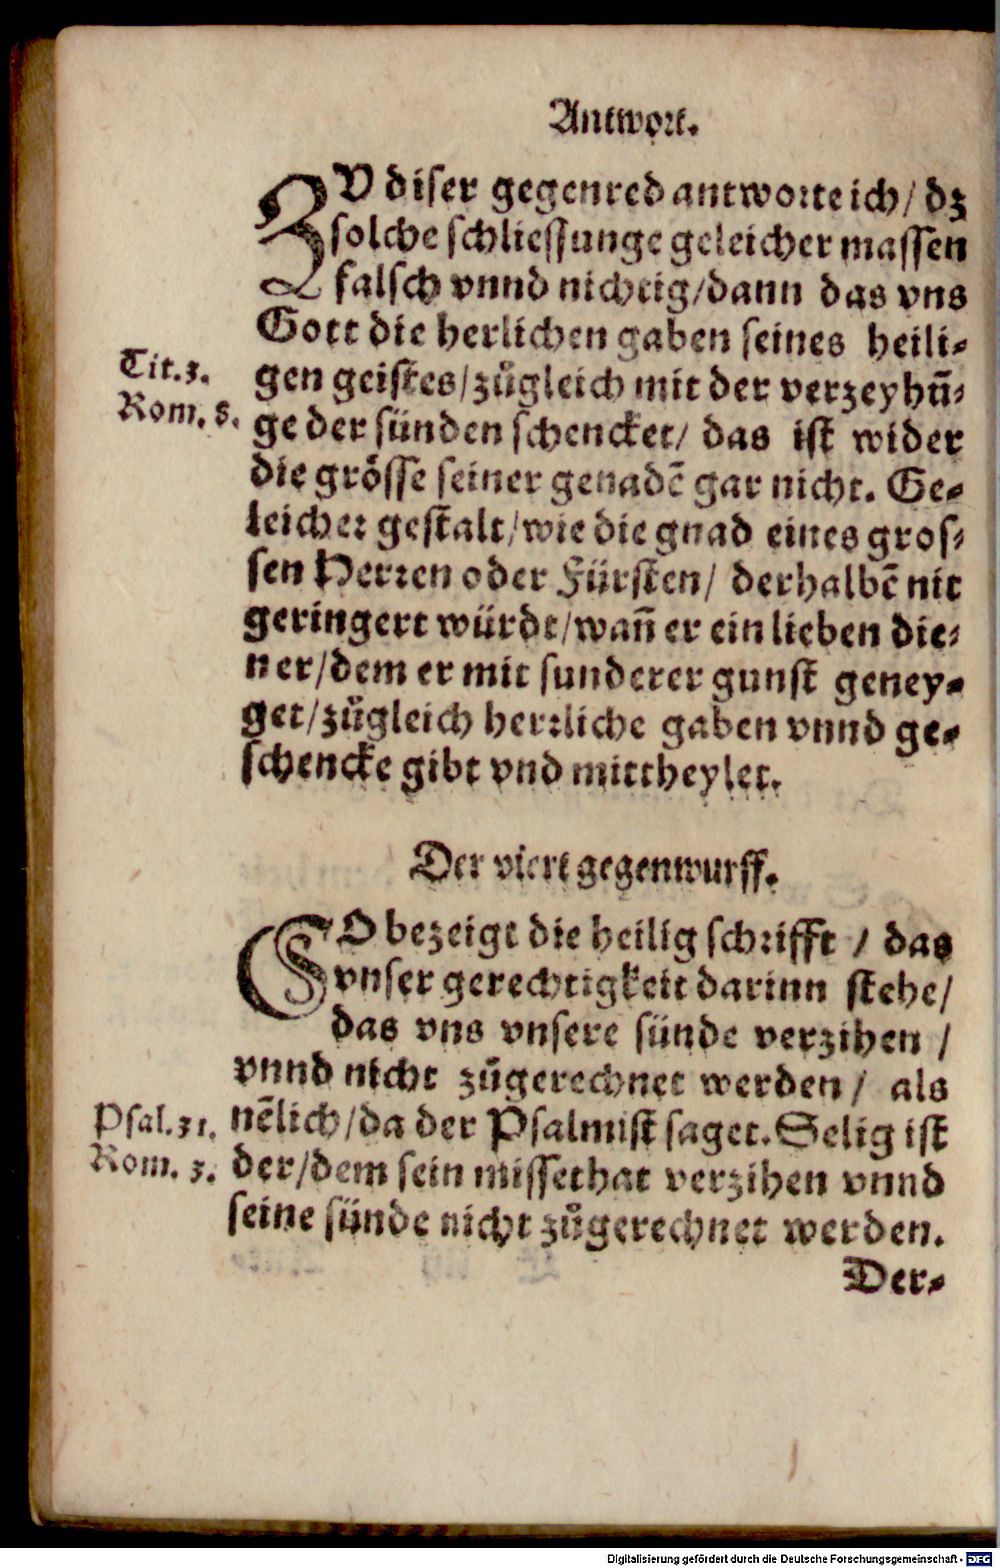 Antwort.
ZV diser gegenred antworte ich/ dz
solche schliessunge geleicher massen
falsch vnnd nichtig/dann das vns
Gott die herlichen gaben seines heili-
Tit.3.
gen geistes/zůgleich mit der verzeyhũ-
Rom. 8.
ge der sünden schencket/ das ist wider
die grösse seiner genadẽ gar nicht. Ge-
leicher gestalt/wie die gnad eines gros-
sen Herren oder Fürsten/ derhalbẽ nit
geringert würdt/wañ er ein lieben die-
ner/dem er mit sunderer gunst geney-
get/zůgleich herzliche gaben vnnd ge-
schencke gibt vnd mittheylet.
Der viert gegenwurff.
SO bezeigt die heilig schrifft / das
vnser gerechtigkeit darinn stehe/
das vns vnsere sünde verzihen /
vnnd nicht zůgerechnet werden/ als
Psal.31.
nẽlich/da der Psalmist saget. Selig ist
Rom. 3.
der/dem sein missethat verzihen vnnd
seine sünde nicht zůgerechnet werden.
Der-
Digitalisierung gefördert durch die Deutsche Forschungsgemeinschaft - DFG